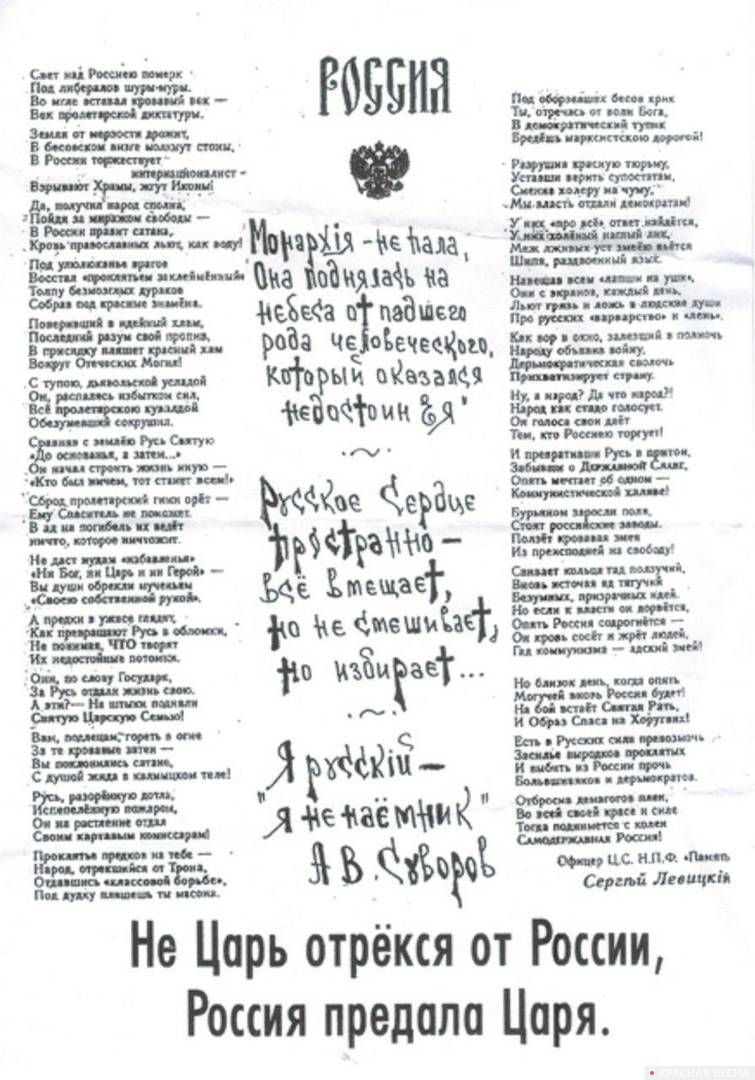 РОССИЯ
Свет над Россиею померк
Под либералов шуры-муры.
Во мгле вставал кровавый век —
Век пролетарской диктатуры.
Земля от мерзости дрожит,
В бесовском визге молкнут стоны,
В России торжествует
интернационалист -
Взрывают Храмы, жгут Иконы!
Да, получил народ сполна,
Пойдя за миражом свободы —
В России правит сатана,
Кровь православных льют, как воду!
Под улюлюканье врагов
Восстал «проклятьем заклеймённый»
Толпу безмозглых дураков
Собрав под красные знамёна.
Поверивший в идейный хлам,
Последний разум свой пропив,
В присядку пляшет красный хам
Вокруг Отеческих Могил!
С тупою, дьявольской усладой
Он, распаляясь избытком сил,
Всё пролетарскою кувалдой
Обезумевший сокрушил.
Сравняв с землёю Русь Святую
«До основанья, а затем...»
Он начал строить жизнь иную —
«Кто был ничем, тот станет всем!»
Сброд пролетарский гимн орёт —
Ему Спаситель не поможет.
В ад на погибель их ведёт
ничто, которое ничтожит.
Не даст иудам «избавленья»
«Ни Бог, ни Царь и ни Герой» —
Вы души обрекли мученьям
«Своею собственной рукой».
А предки в ужасе глядят,
Как превращают Русь в обломки,
Не понимая, ЧТО творят
Их недостойные потомки.
Они, по слову Государя,
За Русь отдали жизнь свою.
А эти?— На штыки подняли
Святую Царскую Семью!
Вам, подлецам, гореть в огне
За те кровавые затеи —
Вы поклонились сатане,
С душой жида в калмыцком теле!
Русь, разорённую дотла,
Испепелённую пожаром,
Он на растление отдал
Своим картавым комиссарам!
Проклятье предков на тебе —
Народ, отрекшийся от Трона,
Отдавшись «классовой борьбе»,
Под дудку пляшешь ты масона.
Монархiя - не пала,
Она поднялась на
небеса от падшего
рода человеческого,
который оказался
недостоин Ея"
Русское Сердце
пространно —
Всё вмещает,
но не смешивает,
но избирает...
Я русскiй —
"я не наёмник"
А В. Суворов
Под оборзевших бесов крик
Ты, отречась от воли Бога,
В демократический тупик
Бредёшь марксистскою дорогой!
Разрушив красную тюрьму,
Уставши верить супостатам,
Сменив холеру на чуму,
Мы власть отдали демократам!
У них «про всё» ответ найдётся,
У них холёный наглый лик,
Меж лживых уст змеёю вьётся
Шипя, раздвоенный язык.
Навешав всем «лапши на уши»,
Они с экранов, каждый день,
Льют грязь и ложь в людские души
Про русских «варварство» и «лень».
Как вор в окно, залезший в полночь
Народу объявив войну,
Дерьмократическая сволочь
Прихватизирует страну.
Ну, а народ? Да что народ?!
Народ как стадо голосует.
Он голоса свои даёт
Тем, кто Россиею торгует!
И превративши Русь в притон,
Забывши о Державной Славе,
Опять мечтает об одном —
Коммунистической халяве!
Бурьяном заросли поля,
Стоят российские заводы.
Ползёт кровавая змея
Из преисподней на свободу!
Свивает кольца гад ползучий,
Вновь источая яд тягучий
Безумных, призрачных идей.
Но если к власти он дорвётся,
Опять Россия содрогнётся —
Он кровь сосёт и жрёт людей,
Гад коммунизма — адский змей!
Но близок день, когда опять
Могучей вновь Россия будет!
На бой встаёт Святая Рать,
И Образ Спаса на Хоругвях!
Есть в Русских сила превозмочь
Засилье выродков проклятых
И выбить из России прочь
Большевизанов и дерьмократов.
Отбросив демагогов плен,
Во всей своей красе и силе
Тогда поднимется с колен
Самодержавная Россия!
Офицер Ц.С. Н.П.Ф. «Память
Сергѣй Левицкiй
Не Царь отрёкся от России,
Россия предала Царя.
КРАСНАЯ ВЕСНА